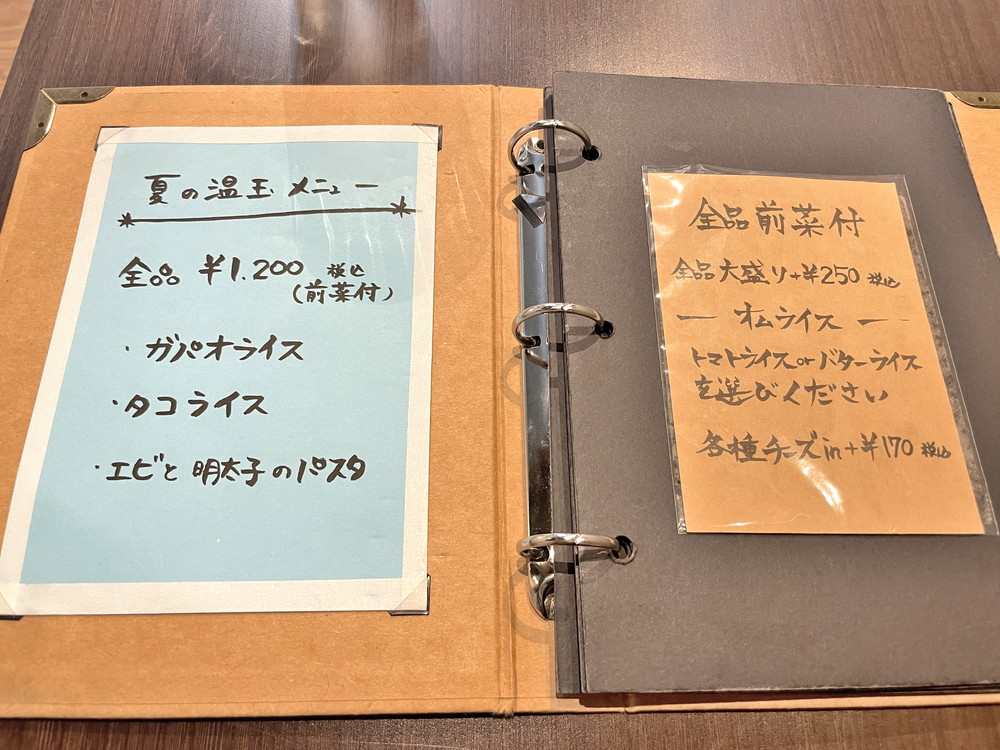 夏の温玉メニュー
全品 ¥1.200 税込
(前菜付)
・ガパオライス
・タコライス
・エビと明太子のパスタ
全品前菜付
全品大盛り+¥250 税込
ー オムライス ー
トマトライスorバターライス
を選びください
各種チーズin+¥170 税込